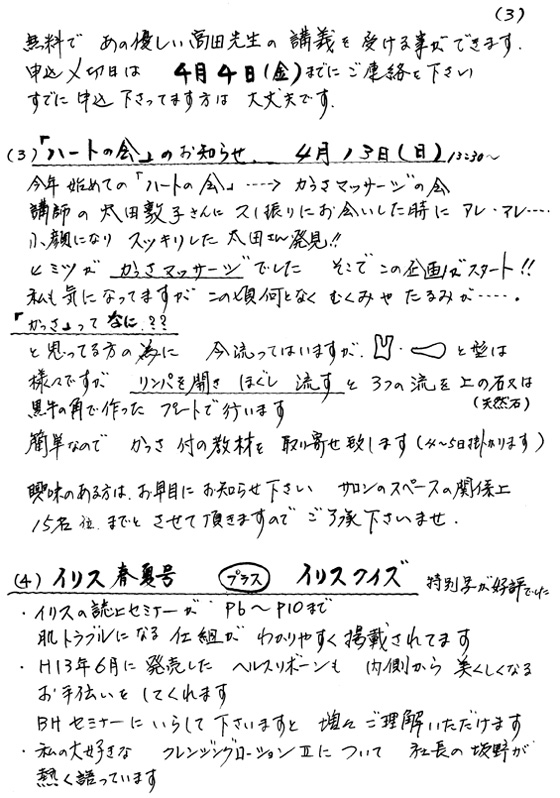 (3)
無料で あの優しい高田先生の 講義を 受ける事ができます.
申込〆切日は 4月4日(金)までにご連絡を下さい
すでに申込 下さってます方は 大丈夫です.
(3)「ハートの会」のお知らせ 4月13日(日)13:30~
今年 始めての「ハートの会」----→ かっさマッサージの会
講師の 太田敦子さんに 久し振りにお会いした時に アレ・アレ・・・・
小顔になり スッキリした 太田さん発見!!
ヒミツが かっさマッサージでした そこでこの企画がスタート!!
私も気になってますが この頃何となく むくみや たるみが・・・・・.
「かっさ」って なに.??
と思ってる方の為に 今流ってはいますが. ・ と型は
様々ですが リンパを開き ほぐし 流すと 3つの流を上の石又は
(天然石)
黒牛の角で作った プレートで行います
簡単なので かっさ 付の教材を 取り寄せ致します(4~5日掛かります)
興味のある方は. お早目に お知らせ下さい サロンのスペースの関係上
15名 位. までと させて頂きますので ご了承下さいませ.
(4) イリス春夏号 プラス イリスクイズ 特別号が好評でした
・イリスの誌上セミナーが P6~P10まで
肌トラブルになる 仕組が わかりやすく掲載されてます
・H13年6月に発売した ヘルスリボーンも 内側から 美くしくなる
お手伝いを してくれます
BHセミナーに いらして下さいますと 増々ご理解いただけます
・私の大好きな クレンジングローションⅡについて 社長の坂野が
熱く語っています